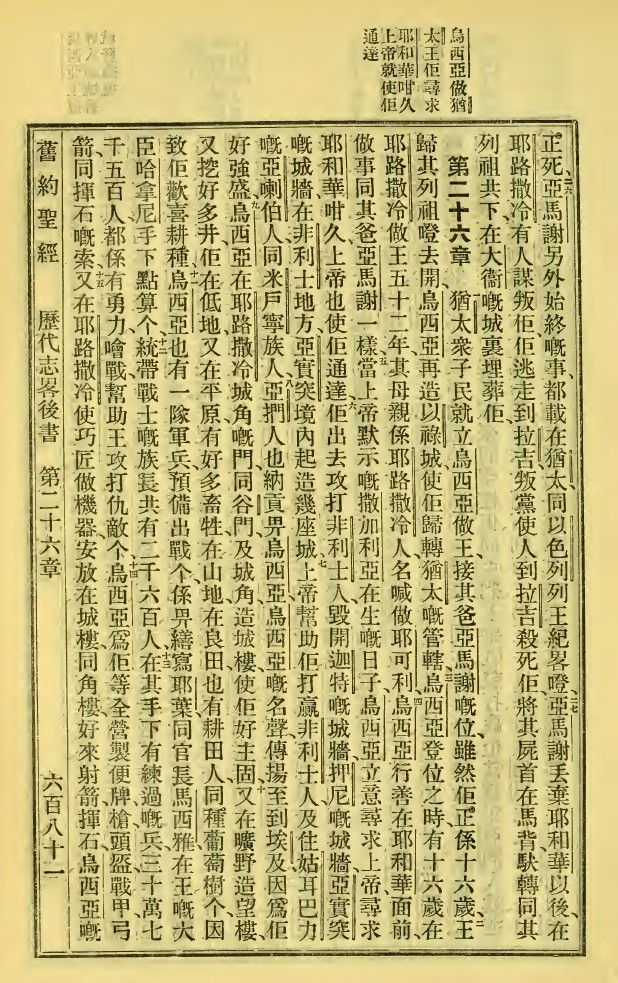 烏西亞做猶
太王佢尋求
耶和華咁久
上帝就使佢
通達
正死亞馬謝另外始終嘅事都載在猶太同以色列列王紀畧噔亞馬謝丟棄耶和華以後在
二六
二七
耶路撒冷有人謀叛佢佢逃走到拉吉叛黨使人到拉吉殺死佢將其屍首在馬背馱轉同其
列祖共下在大衞嘅城裏埋葬佢
第二十六章 猶太衆子民就立烏西亞做王接其爸亞馬謝嘅位雖然佢正係十六歲王
二
歸其列祖噔去開烏西亞再造以祿城使佢歸轉猶太嘅管轄烏西亞登位之時有十六歲在
三
耶路撒冷做王五十二年其母親係耶路撒冷人名喊做耶可利烏西亞行善在耶和華面前
四
做事同其爸亞馬謝一樣當上帝默示嘅撒加利亞在生嘅日子烏西亞立意尋求上帝尋求
五
耶和華咁久上帝也使佢通達佢出去攻打非利士人毀開迦特嘅城牆押尼嘅城牆亞實突
六
嘅城牆在非利士地方亞實突境內起造幾座城上帝幫助佢打贏非利士人及住姑耳巴力
七
嘅亞喇伯人同米戶寧族人亞捫人也納貢畀烏西亞烏西亞嘅名聲傳揚至到埃及因爲佢
八
好強盛烏西亞在耶路撒冷城角嘅門同谷門及城角造城樓使佢好主固又在曠野造望樓
九
十
又挖好多井佢在低地又在平原有好多畜牲在山地在良田也有耕田人同種葡萄樹个因
致佢歡喜耕種烏西亞也有一隊軍兵預備出戰个係畀繕寫耶葉同官長馬西雅在王嘅大
十一
臣哈拿尼手下點算个統帶戰士嘅族長共有二千六百人在其手下有練過嘅兵三十萬七
十二
十三
千五百人都係有勇力噲戰幫助王攻打仇敵个烏西亞爲佢等全營製便牌槍頭盔戰甲弓
十四
箭同揮石嘅索又在耶路撒冷使巧匠做機器安放在城樓同角樓好來射箭揮石烏西亞嘅
十五
舊約聖經 歷代志畧後書 第二十六章 六百八十一